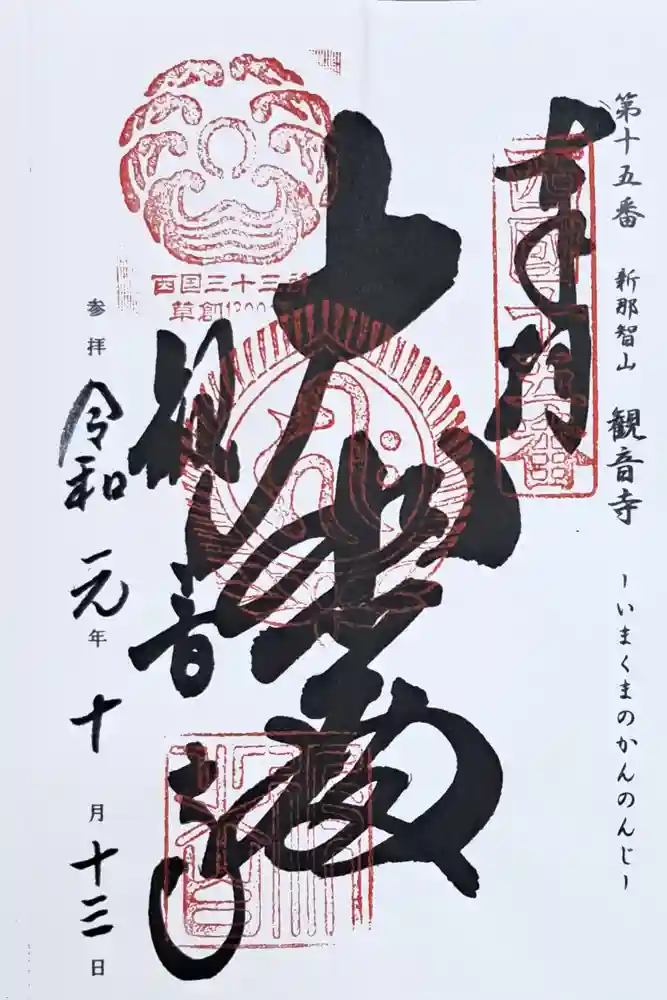 第十五番 新那智山 観音寺 -いまくまのかんのんじ-
奉拝
西國十五番
大悲殿
西国三十三所
草創1300
観音寺
参拝 令和元年十月十三日